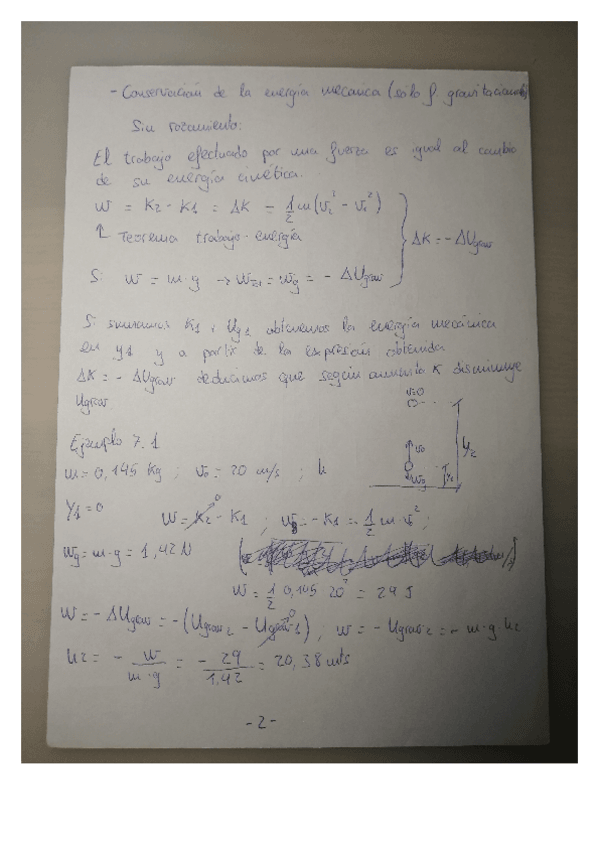 - Conservación de la energía mecánica (sólo f gravitacional)
Sin rozamiento:
El trabajo efectuado por una fuerza es igual al cambio
de su energía cinética.
W = K2 - K1 = ΔK = 1/2 m (v2² - v1²)
↑ Teorema trabajo-energía
ΔK = - ΔUgrav
Si W = m·g → = Wg = - ΔUgrav
Si sumamos K1 + Ug1 obtenemos la energía mecánica
en y1 y a partir de la expresión obtenida
ΔK = - ΔUgrav deducimos que según aumenta K disminuye
Ugrav
v=0
Ejemplo 7.1
m = 0,145 Kg ; v0 = 20 m/s ; h
v0
Wg
y1 = 0
W = K2 - K1 ; Wg = - K1 = 1/2 m·v0² ;
0
Wg = m·g = 1,42 N
W = 1/2 0,145 20² = 29 J
W = - ΔUgrav = - (Ugrav2 - Ugrav1) ; W = - Ugrav2 = - m·g·h2
0
h2 = - W/m·g = - 29/1,42 = 20,38 mts
- 2 -